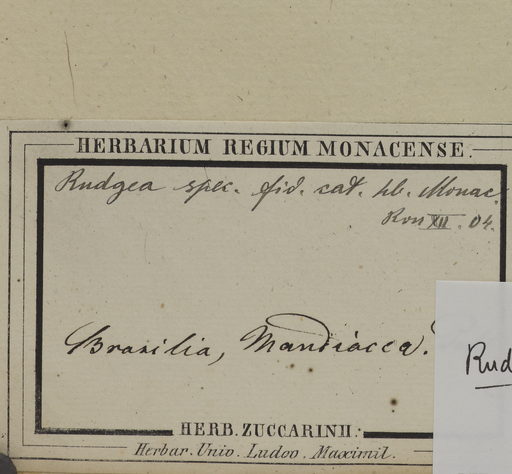 HERBARIUM REGIUM MONACENSE.
Rudgea spec. fid. cat. hb. Monac.
Ross XII. 04.
Brasilia, Mandiocca.
Rud
HERB. ZUCCARINII.
Herbar. Univ. Ludov. Maximil.